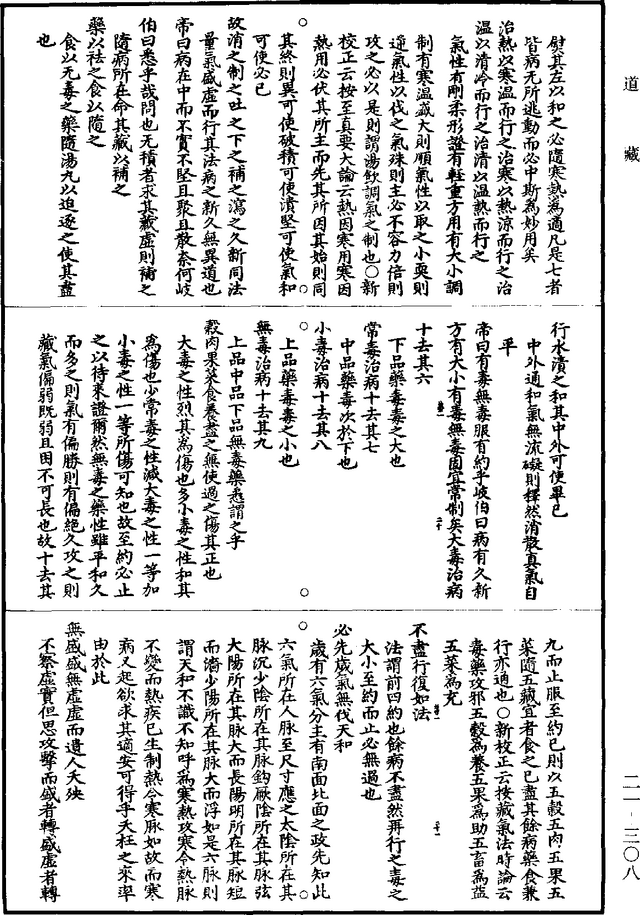 道藏
熨其左以和之必隨寒熱為適凡是七者
皆病無所逃動而必中斯為妙用矣
治熱以寒溫而行之治寒以熱涼而行之治
溫以清冷而行之治清以溫熱而行之
氣性有剛柔形證有輕重方用有大小調
制有寒溫盛大則順氣性以取之小耎則
逆氣性以伐之氣殊則主必不容力倍則
攻之必以是則謂湯飲調氣之制也○新
校正云按至真要大論云熱因寒用寒因
熱用必伏其所主而先其所因其始則同
其終則異可使破積可使潰堅可使氣和
可使必已
故消之制之吐之下之補之瀉之久新同法
量氣盛虛而行其法病之新久無異道也
帝曰病在中而不實不堅且聚且散奈何岐
伯曰悉乎哉問也无積者求其藏虛則補之
隨病所在命其藏以補之
藥以祛之食以隨之
食以无毒之藥隨湯丸以迫逐之使其盡
也
行水漬之和其中外可使畢已
中外通和氣無流礙則釋然消散真氣自
平
帝曰有毒無毒服有約乎岐伯曰病有久新
方有大小有毒無毒固宜常制矣大毒治病
十去其六
下品藥毒毒之大也
常毒治病十去其七
中品藥毒次於下也
小毒治病十去其八
上品藥毒毒之小也
無毒治病十去其九
上品中品下品無毒藥悉謂之平
穀肉果菜食養盡之無使過之傷其正也
大毒之性烈其為傷也多小毒之性和其
為傷也少常毒之性減大毒之性一等加
小毒之性一等所傷可知也故至約必止
之以待來證爾然無毒之藥性雖平和久
而多之則氣有偏勝則有偏絕久攻之則
藏氣偏弱既弱且困不可長也故十去其
九而止服至約已則以五穀五肉五果五
菜隨五藏宜者食之已盡其餘病藥食兼
行亦通也○新校正云按藏氣法時論云
毒藥攻邪五穀為養五果為助五畜為益
五菜為充
不盡行復如法
法謂前四約也餘病不盡然再行之毒之
大小至約而止必無過也
必先歲氣無伐天和
歲有六氣分主有南面北面之政先知此
六氣所在人脉至尺寸應之太陰所在其
脉沉少陰所在其脉鈎厥陰所在其脉弦
大陽所在其脉大而長陽明所在其脉短
而濇少陽所在其脉大而浮如是六脉則
謂天和不識不知呼為寒熱攻寒令熱脉
不變而熱疾已生制熱令寒脉如故而寒
病又起欲求其適安可得乎夭枉之來率
由於此
無盛盛無虛虛而遺人夭殃
不察虛實但思攻擊而盛者轉盛虛者轉
二一-三〇八